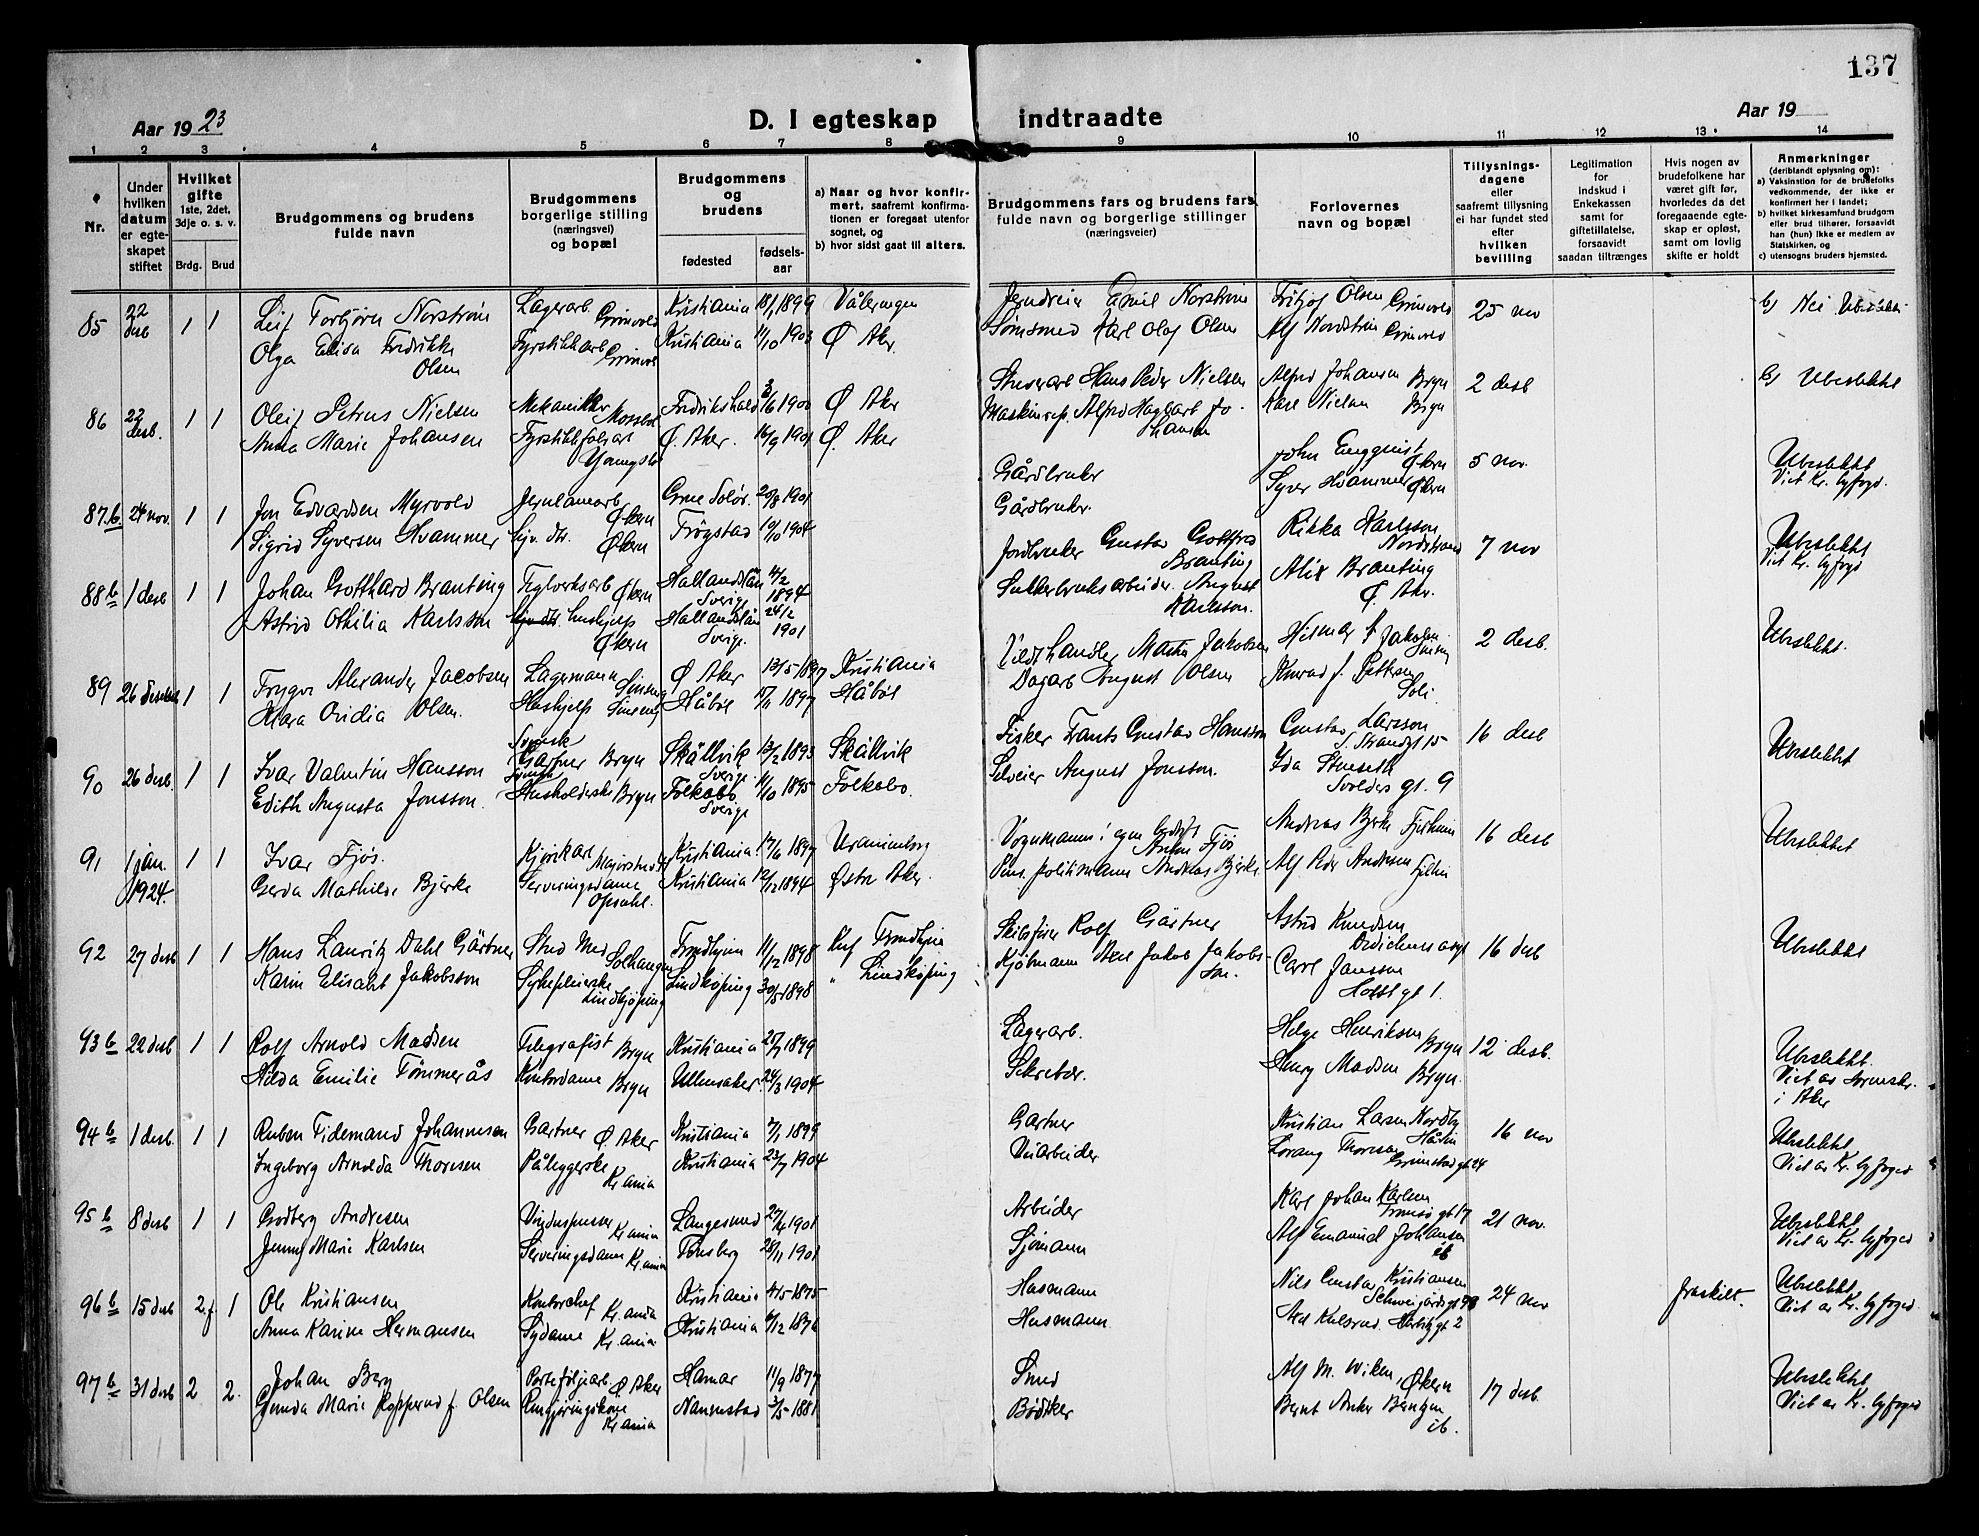 137
Aar 1923
D. I egteskap indtraadte
Aar 19
1 2 3 4 5 6 7 8 9 10 11 12 13 14
Nr.
Under hvilken datum er egteskapet stiftet
Hvilket gifte 1ste, 2det, 3dje o. s. v.
Brdg. Brud
Brudgommens og brudens fulde navn
Brudgommens borgerlige stilling (næringsvei) og bopæl
Brudgommens og brudens
fødested
fødselsaar
a) Naar og hvor konfirmert, saafremt konfirmationen er foregaat utenfor sognet, og
b) hvor sidst gaat til alters.
Brudgommens fars og brudens fars fulde navn og borgerlige stillinger (næringsveier)
Forlovernes navn og bopæl
Tillysningsdagene eller saafremt tillysning ei har fundet sted efter hvilken bevilling
Legitimation for indskud i Enkekassen samt for giftetillatelse, forsaavidt saadan tiltrænges
Hvis nogen av brudefolkene har været gift før, hvorledes da det foregaaende egteskap er opløst, samt om lovlig skifte er holdt
Anmerkninger (deriblandt oplysning om):
a) Vaksinstion for de brudefolks vedkommende, der ikke er konfirmert her i landet;
b) hvilket kirkesamfund brudgom eller brud tilhører, forsaavidt han (hun) ikke er medlem av Statskirken, og
c) utensogns bruders hjemsted.
85 22 desb 1 1 Leif Torbjørn Norstrøm Lagerarb. Grinvold Kristiania 18/1 1899 Vålerengen Jerndreier Emil Norstrøm Fritjof Olsen Grinvold 25 nov b) Nei Ubeslektet
Olga Elisa Fredrikke Olsen Fyrstikkarb Grinvold Kristiania 11/10 1903 Ø Aker. Tømsmed Karl Olaf Olsen Alf Nordstrøm Grinvold
86 22 desb. 1 1 Oleif Petrus Nielsen Mekaniker Fredrikshald 3/6 1900 Ø Aker Stuerarb Hans Peder Nielsen Alfred Johansen Bryn 2 desb b) Ubeslektet
Anna Marie Johansen Ø. Aker. 16/9 1901 Ø. Aker Maskinrep. Alfred Hagbart Johansen Karl Nielsen Bryn
87.b 24 nov. 1 1 Jon Edvardsen Myrvold Jernbanearb Økern Grue Solør 20/8 1901 Gårdbruker John Engquist Økern 5 nov. Ubeslektet
Sigrid Syversen Hvammer Hjv. dtr. Økern Trøgstad 19/10 1904 Gårdbruker. Syver Hvammer Økern Viet Kr. byfogd.
88b 1 desb 1 1 Johan Gotthard Branting Teglverksarb Økern Hallandslän Sverige 4/2 1894 Jordbruker Gustav Gottfred Branting Rikka Karlsson Nordstrand 7 nov Ubeslektet
Astrid Othilia Karlsson hushjelp Økern Hallandslän Sverige 24/2 1901 Sukkerbruksarbeider August Karlsson. Alix Branting Ø. Aker. Viet Kr. byfogd
89 26 desemb 1 1 Trygve Alexander Jacobsen Lagermann Sinsen Ø Aker 13/5 1897 Kristiania Vildthandler Martin Jakobsen Hilmar Jakobsen Sinsen 2 desb. Ubeslektet.
Klara Ovidia Olsen. Hushjelp Sinsen Håbøl 1897 Håbøl Dagarb August Olsen Konrad J. Pettersen
90 26 desb 1 1 Ivar Valentin Hansson Svensk Gartner Bryn Skällvik Sverige 13/2 1893 Skällvik Fisker Frants Gustav Hansson Gustav Larsson Strandgt 15 16 desb Ubeslektet
Edith Augusta Jonsson. Svensk Husholderske Bryn Folkabo Sverige 11/10 1895 Folkabo. Selveier August Jonsson. Ida Svolders gt. 9
91 1 jan. 1924. 1 1 Ivar Fjøs. Majorstuen Kristiania. 17/6 1897 Uranienborg Vognmann i egen bedrift Anton Fjøs Andreas Bjerke Fjelheim 16 desb Ubeslektet
Gerda Mathilde Bjerke Serveringsdame Opsahl. Kristiania 12/12 1894 Østre Aker. Pens. politimann Andreas Bjerke Alf Peder Andersen Fjelheim
92 27 desb 1 1 Hans Lauritz Dahl Gärtner Stud Med Solhaugen Trondhjem 11/12 1898 Konf Trondhjem Skibsfører Rolf Gärtner Astrid Knudsen 16 desb Ubeslektet
Karin Elisabet Jakobsson Sykepleierske Lindkjöping Lindköping 30/5 1898 " Lindköping Kjøbmann Axel Jakob Jakobsson. Carl Jansson Holtsgt 1.
93b 22 desb 1 1 Rolf Arnold Madsen Telegrafist Bryn Kristiania 25/7 1899 Lagerarb. Helge Henriksen Bryn 12 desb. Ubeslektet.
Hilda Emilie Tømmerås Kontordame Bryn Ullensaker. 24/3 1904 Sekretær. Henry Madsen Bryn. Viet av sorenskr. i Aker
94b 1 desb. 1 1 Ruben Tidemand Johannesen Gartner Ø. Aker Kristiania 7/1 1899 Gartner Kristian Larsen Nordby 16 nov Ubeslektet.
Ingeborg Arnolda Thoresen Pålæggerske Kr.ania Kristiania 23/7 1904 Veiarbeider Lorang Thoresen Grimstadgt 24 Viet av Kr. byfoged
95b 8 desb 1 1 Godberg Andresen Vinduspusser Kr.ania Langesund 27/4 1901 Arbeider Karl Johan Karlsen Tromsøgt 17 21 nov. Ubeslektet
Jenny Marie Karlsen Serveringsdame Kr.ania Tønsberg 28/11 1901 Sjømann Alf Emanuel Johansen ib Viet av Kr. byfoged
96b 15 desb 2.f 1 Ole Kristiansen Kontorchef Kr.ania Kristiania 4/5 1875 Husmann Nils Gustav Kristiansen Schweigårdsgt 98 24 nov fraskilt. Ubeslektet
Anna Karine Hermansen Sydame Kr.ania Kristiania 6/12 1876 Husmann Axel Kulsrud. gt 2 Viet av Kr. byfoged
97b 31 desb 2 2. Johan Berg Porteføljearb. Ø. Aker Hamar 11/9 1877 Smed Alf M. Wiken, Økern 17 desb. Ubeslektet
Gunda Marie Kopperud f. Olsen Rengjøringskone Kr.ania Nannestad 3/5 1881 Bødker Bernt Anker Berntzen ib. Viet av Kr. byfoged